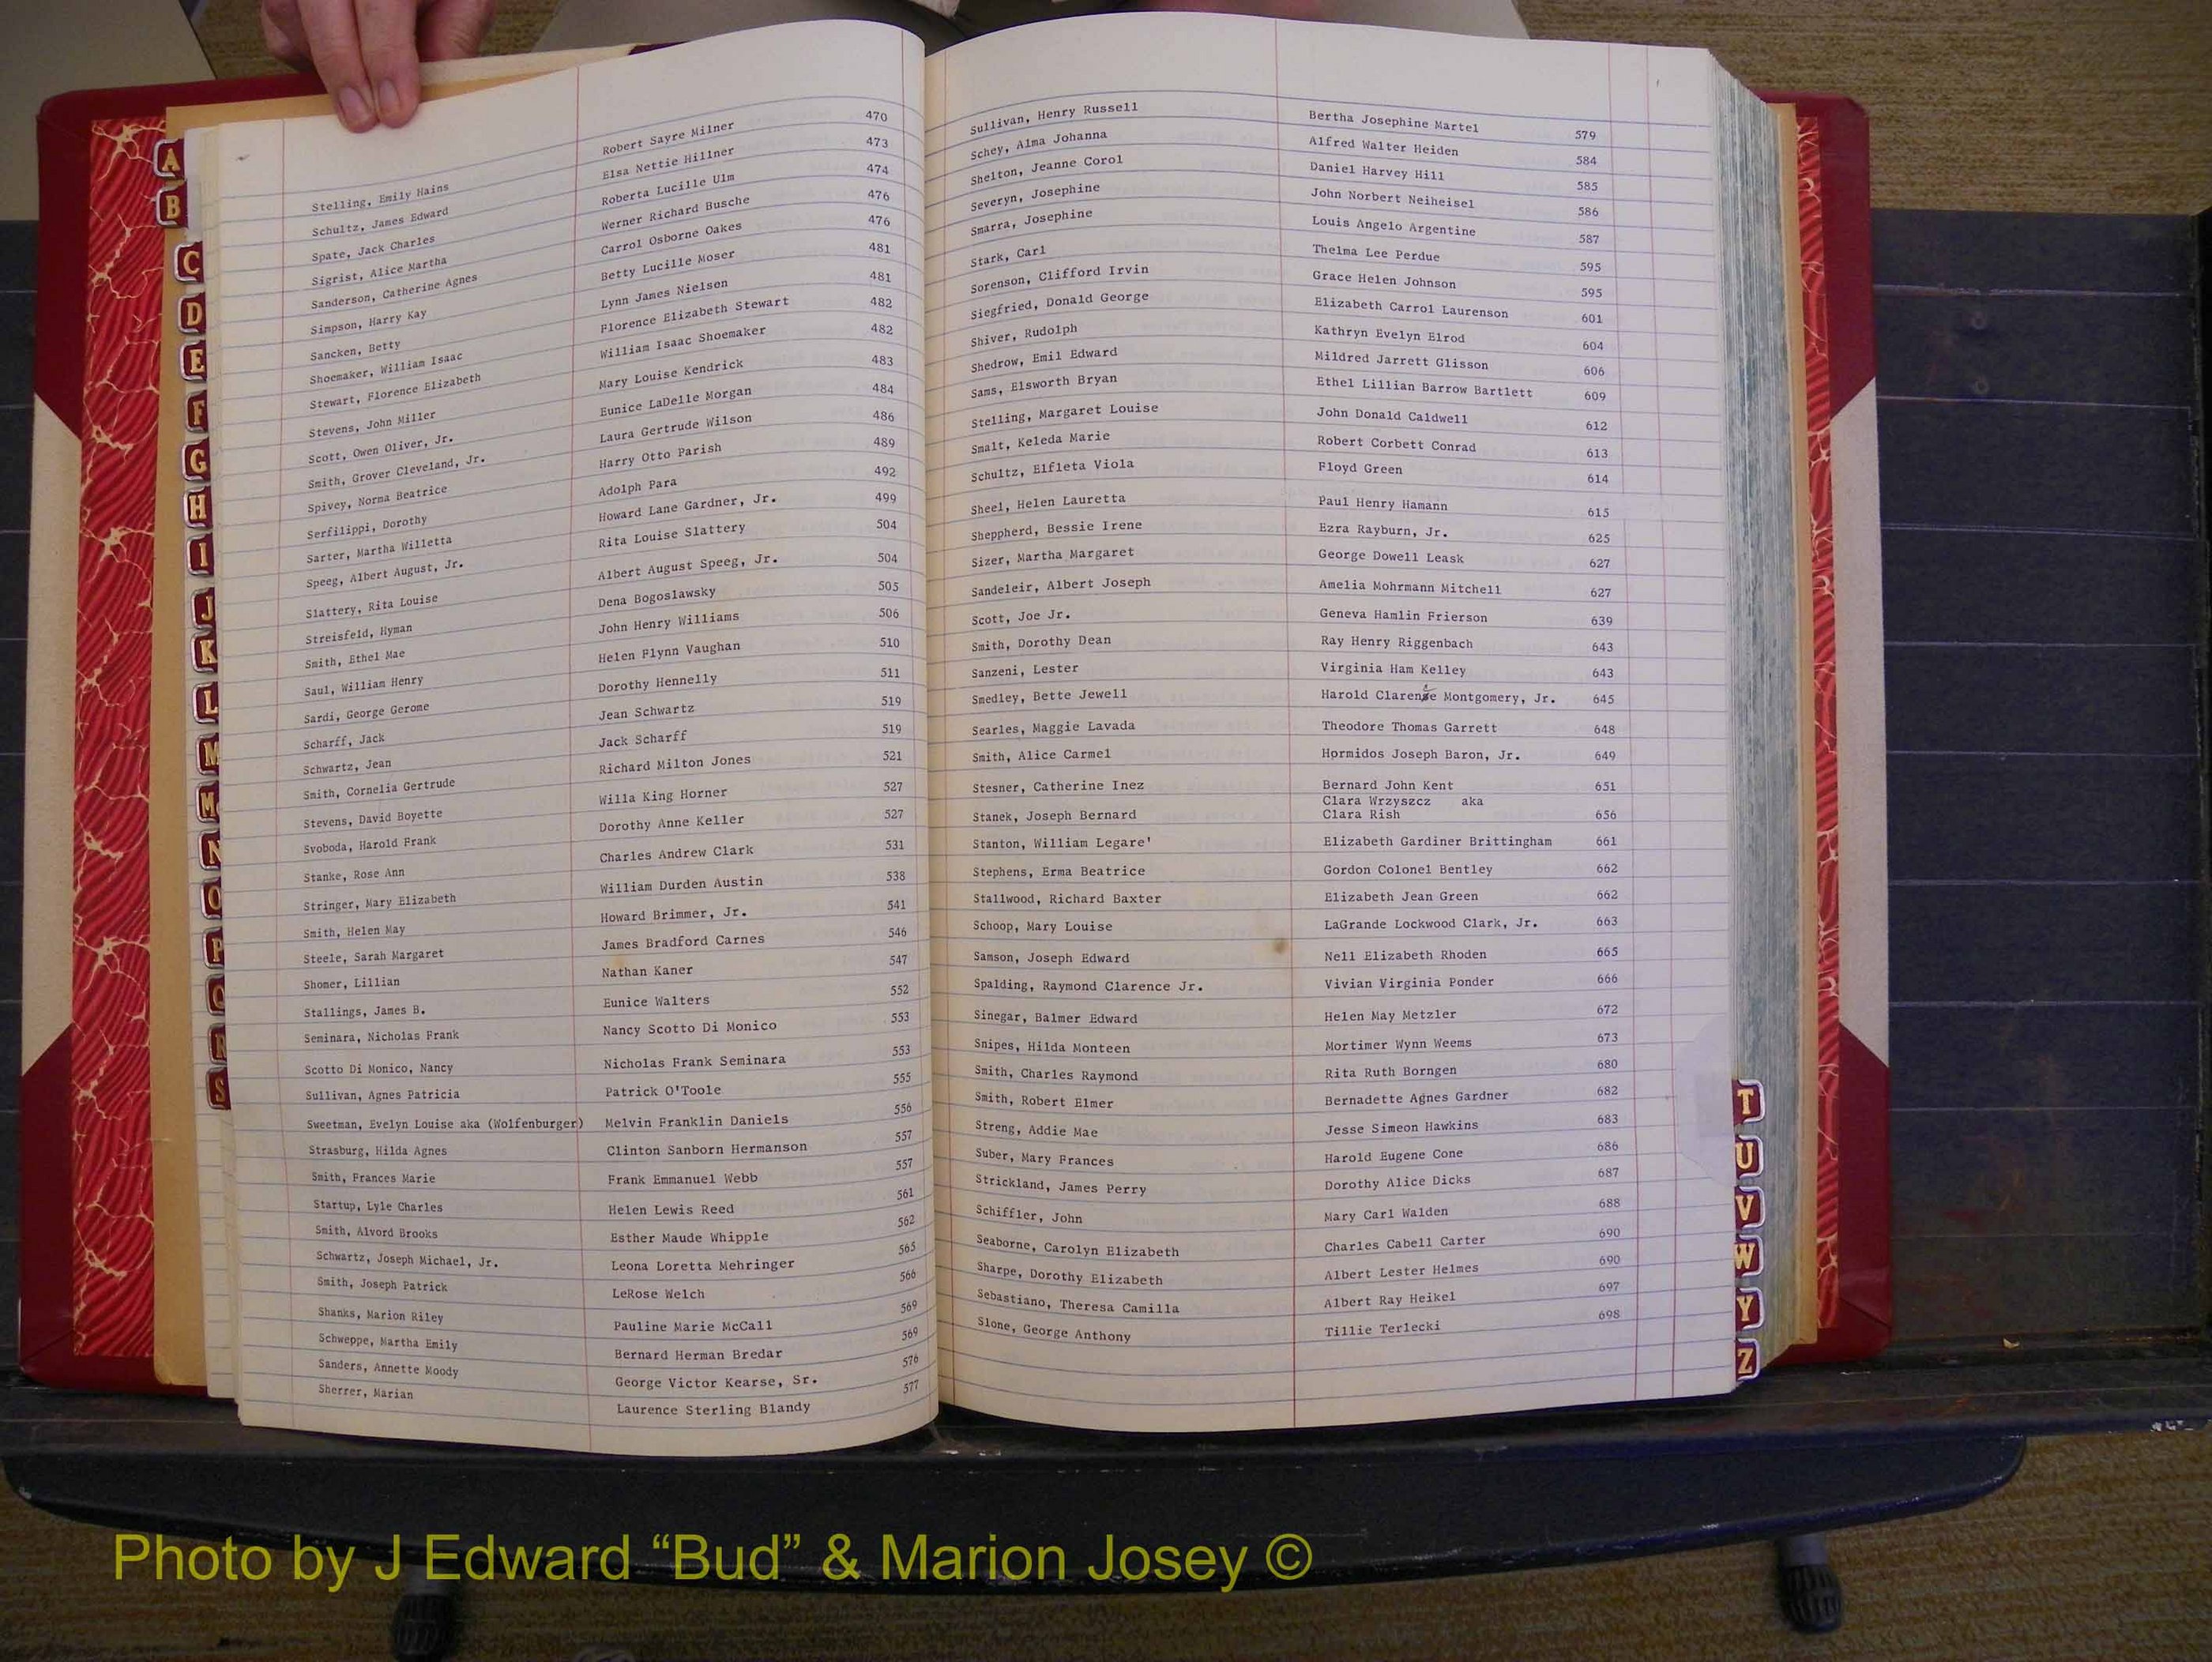 Stelling, Emily Hains Robert Sayre Milner 470
Schultz, James Edward Elsa Nettie Hillner 473
Spate, Jack Charles Roberta Lucille Ulm 474
Sigrist, Alice Martha Werner Richard Busche 476
Sanderson, Catherine Agnes Carrol Osborne Oakes 476
Simpson, Harry Kay Betty Lucille Moser 481
Sancken, Betty Lynn James Nielsen 481
Shoemaker, William Isaac Florence Elizabeth Stewart 482
Stewart, Florence Elizabeth William Isaac Shoemaker 482
Stevens, John Miller Mary Louise Kendrick 483
Scott, Owen Oliver, Jr. Eunice LaDelle Morgan 484
Smith, Grover Cleveland, Jr. Laura Gertrude Wilson 486
Spivey, Norma Beatrice Harry Otto Parish 489
Serfilippi, Dorothy Adolph Para 492
Sarter, Martha Willetta Howard Lane Gardner, Jr. 499
Speeg, Albert August, Jr. Rita Louise Slattery 504
Slattery, Rita Louise Albert August Speeg, Jr. 504
Streisfeld, Hyman Dena Bogoslawsky 505
Smith, Ethel Mae John Henry Williams 506
Saul, William Henry Helen Flynn Vaughan 510
Sardi, George Gerome Dorothy Hennelly 511
Scharff, Jack Jean Schwartz 519
Schwartz, Jean Jack Scharff 519
Smith, Cornelia Gertrude Richard Milton Jones 521
Stevens, David Boyette Willa King Horner 527
Svoboda, Harold Frank Dorothy Anne Keller 527
Stanke, Rose Ann Charles Andrew Clark 531
Stringer, Mary Elizabeth William Durden Austin 538
Smith, Helen May Howard Brimmer, Jr. 541
Steele, Sarah Margaret James Bradford Carnes 546
Shomer, Lillian Nathan Kaner 547
Stallings, James B. Eunice Walters 552
Seminara, Nicholas Frank Nancy Scotto Di Monico 553
Scotto Di Monico, Nancy Nicholas Frank Seminara 553
Sullivan, Agnes Patricia Patrick O'Toole 555
Sweetman, Evelyn Louise aka (Wolfenburger) Melvin Franklin Daniels 556
Strasburg, Hilda Agnes Clinton Sanborn Hermanson 557
Smith, Frances Marie Frank Emmanuel Webb 557
Startup, Lyle Charles Helen Lewis Reed 561
Smith, Alvord Brooks Esther Maude Whipple 562
Schwartz, Joseph Michael, Jr. Leona Loretta Mehringer 565
Smith, Joseph Patrick LeRose Welch 566
Shanks, Marion Riley Pauline Marie McCall 569
Schweppe, Martha Emily Bernard Herman Bredar 569
Sanders, Annette Moody George Victor Kearse, Sr. 576
Sherrer, Marian Laurence Sterling Blandy 577
Sullivan, Henry Russell Bertha Josephine Martel 579
Schey, Alma Johanna Alfred Walter Heiden 584
Shelton, Jeanne Corol Daniel Harvey Hill 585
Severyn, Josephine John Norbert Neiheisel 586
Smarra, Josephine Louis Angelo Argentine 587
Stark, Carl Thelma Lee Perdue 595
Sorenson, Clifford Irvin Grace Helen Johnson 595
Siegfried, Donald George Elizabeth Carrol Laurenson 601
Shiver, Rudolph Kathryn Evelyn Elrod 604
Shedrow, Emil Edward Mildred Jarrett Glisson 606
Sams, Elsworth Bryan Ethel Lillian Barrow Bartlett 609
Stelling, Margaret Louise John Donald Caldwell 612
Smalt, Keleda Marie Robert Corbett Conrad 613
Schultz, Elfleta Viola Floyd Green 614
Sheel, Helen Lauretta Paul Henry Hamann 615
Sheppherd, Bessie Irene Ezra Rayburn, Jr. 625
Sizer, Martha Margaret George Dowell Leask 627
Sandeleir, Albert Joseph Amelia Mohrmann Mitchell 627
Scott, Joe Jr. Geneva Hamlin Frierson 639
Smith, Dorothy Dean Ray Henry Riggenbach 643
Sanzeni, Lester Virginia Ham Kelley 643
Smedley, Bette Jewell Harold Clarence Montgomery, Jr. 645
Searles, Maggie Lavada Theodore Thomas Garrett 648
Smith, Alice Carmel Hormidos Joseph Baron, Jr. 649
Stesner, Catherine Inez Bernard John Kent 651
Clara Wrzyszcz aka
Stanek, Joseph Bernard Clara Rish 656
Stanton, William Legare' Elizabeth Gardiner Brittingham 661
Stephens, Erma Beatrice Gordon Colonel Bentley 662
Stallwood, Richard Baxter Elizabeth Jean Green 662
Schoop, Mary Louise LaGrande Lockwood Clark, Jr. 663
Samson, Joseph Edward Nell Elizabeth Rhoden 665
Spalding, Raymond Clarence Jr. Vivian Virginia Ponder 666
Sinegar, Balmer Edward Helen May Metzler 672
Snipes, Hilda Monteen Mortimer Wynn Weems 673
Smith, Charles Raymond Rita Ruth Borngen 680
Smith, Robert Elmer Bernadette Agnes Gardner 682
Streng, Addie Mae Jesse Simeon Hawkins 683
Suber, Mary Frances Harold Eugene Cone 686
Strickland, James Perry Dorothy Alice Dicks 687
Schiffler, John Mary Carl Walden 688
Seaborne, Carolyn Elizabeth Charles Cabell Carter 690
Sharpe, Dorothy Elizabeth Albert Lester Helmes 690
Sebastiano, Theresa Camilla Albert Ray Heikel 697
Slone, George Anthony Tillie Terlecki 698
A
B
C
D
E
F
G
H
I
J
K
L
M
Mc
N
O
P
Q
R
S
T
U
V
W
Y
Z
Photo by J Edward “Bud” & Marion Josey ©